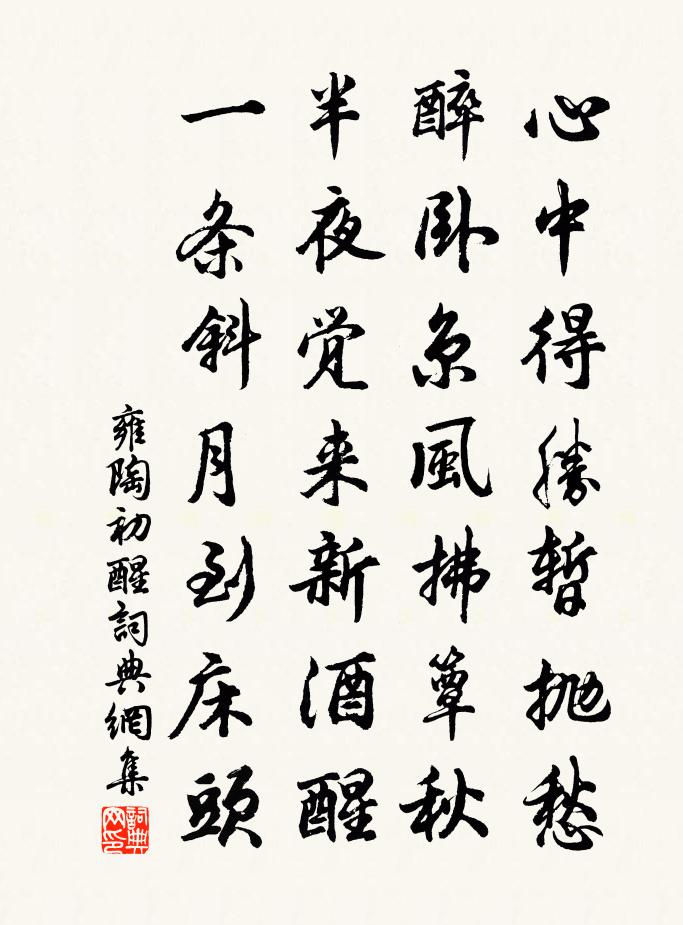 心中得勝暫抛愁
醉卧凉風拂簟秋
半夜觉来新酒醒
一条斜月到床頭
雍陶初醒詞典網集
詞典
网印